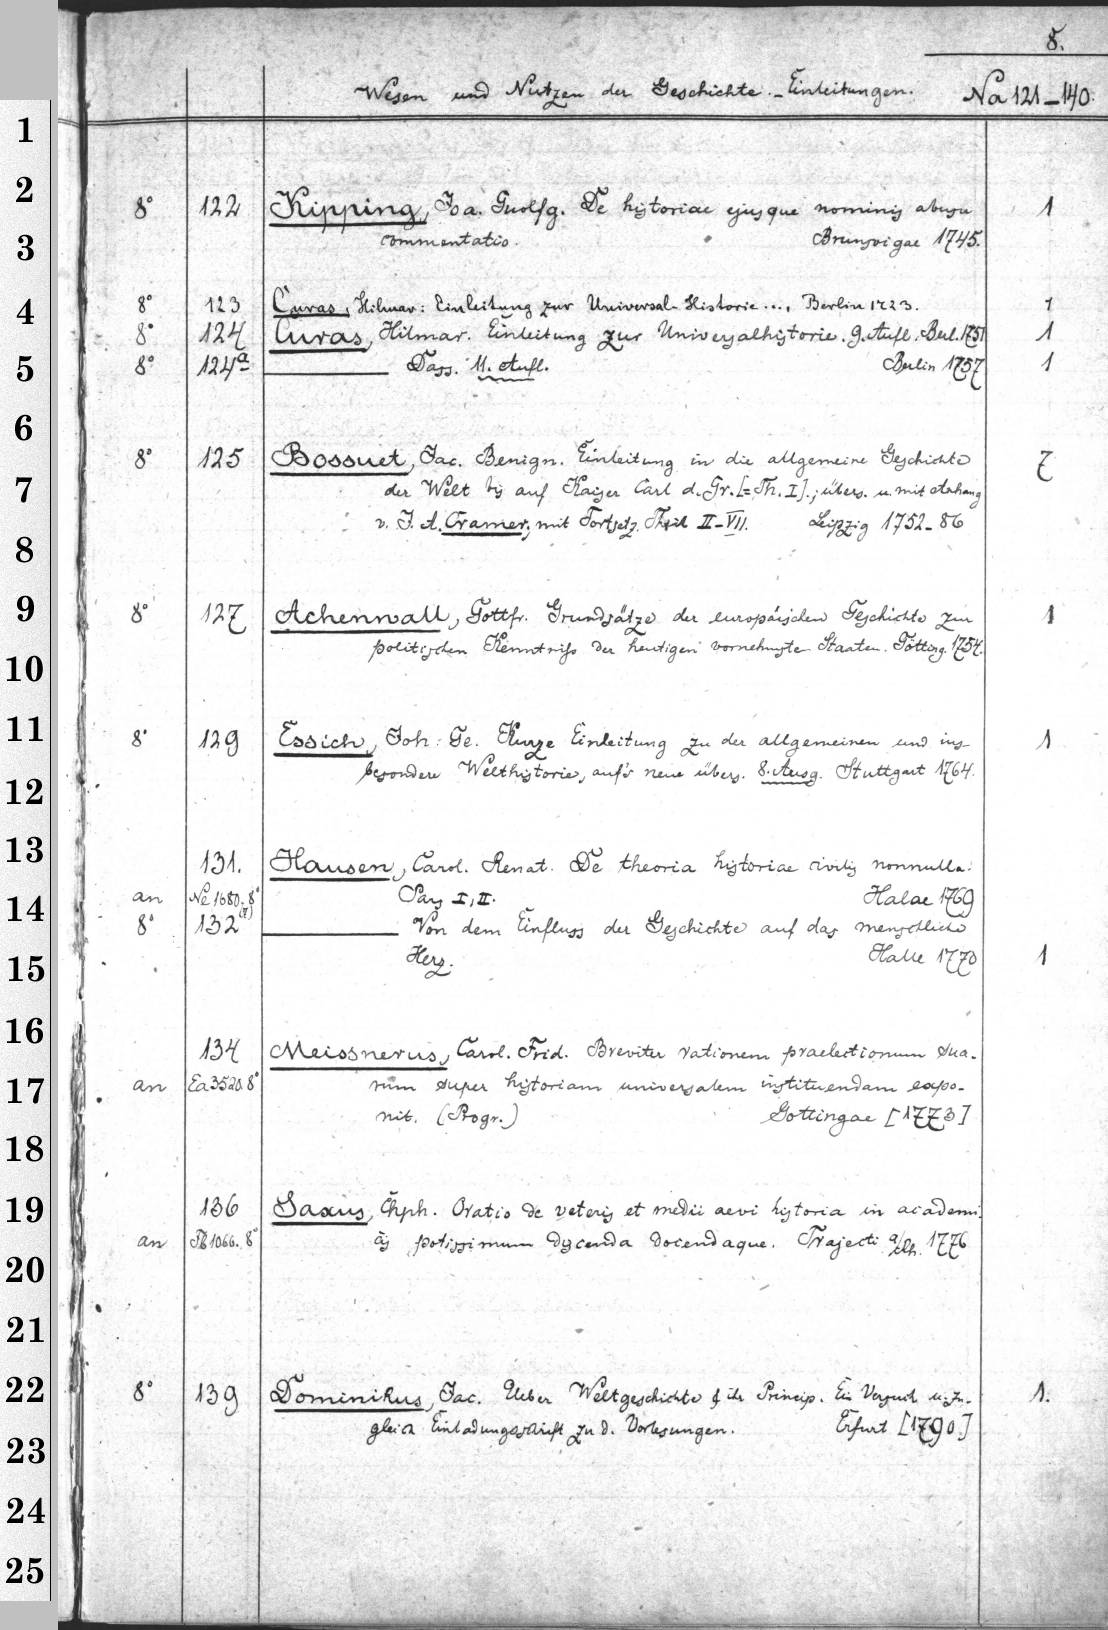 8.
Wesen und Nutzen der Geschichte. - Einleitungen. Na 121-140.
1
2
8° 122 Kipping, Joa. Guolfg. De historiae ejusque nominis abusu 1
3
commentatio. Brunsvigae 1745.
4
8° 123 Curas, Hilmar: Einleitung zur Universal-Historie..., Berlin 1723. 1
8° 124 Curas, Hilmar. Einleitung zur Universalhistorie. 9. Aufl. Berl. 1751 1
5
8° 124a ——— Dass. 11. Aufl. Berlin 1757 1
6
8° 125 Bossuet, Jac. Benign. Einleitung in die allgemeine Geschichte 7
7
der Welt bis auf Kaiser Carl d. Gr. [= Th. I].; übers. u. mit Anhang
v. J. A. Cramer; mit Fortsetz. Theil II-VII. Leipzig 1752-86
8
9
8° 127 Achenwall, Gottfr. Grundsätze der europäischen Geschichte zur 1
politischen Kenntniss der heutigen vornehmste Staaten. Götting. 1754.
10
11
8° 129 Essich, Joh. Ge. Kurze Einleitung zu der allgemeinen und ins- 1
besondere Welthistorie, auf's neue übers. 8. Ausg. Stuttgart 1764.
12
13
131. Hausen, Carol. Renat. De theoria historiae civilis nonnulla.
an Ne 1680. 8° (7) Pars I, II. Halae 1769
14
8° 132 ——— Von dem Einfluss der Geschichte auf das menschliche
15
Herz. Halle 1770 1
16
134 Meissnerus, Carol. Frid. Breviter rationem praelectionum sua-
17
an Ea 3520. 8° rum super historiam universalem instituendam expo-
nit. (Progr.) Gottingae [1773]
18
19
136 Saxus, Chph. Oratio de veteris et medii aevi historia in academi-
an 1066. 8° is potissimum discenda docendaque. Trajecti a/Rh. 1776
20
21
22
8° 139 Dominikus, Jac. Ueber Weltgeschichte & ihr Princip. Ein Versuch u. zu- 1.
gleich Einladungsschrift zu d. Vorlesungen. Erfurt [1790.]
23
24
25